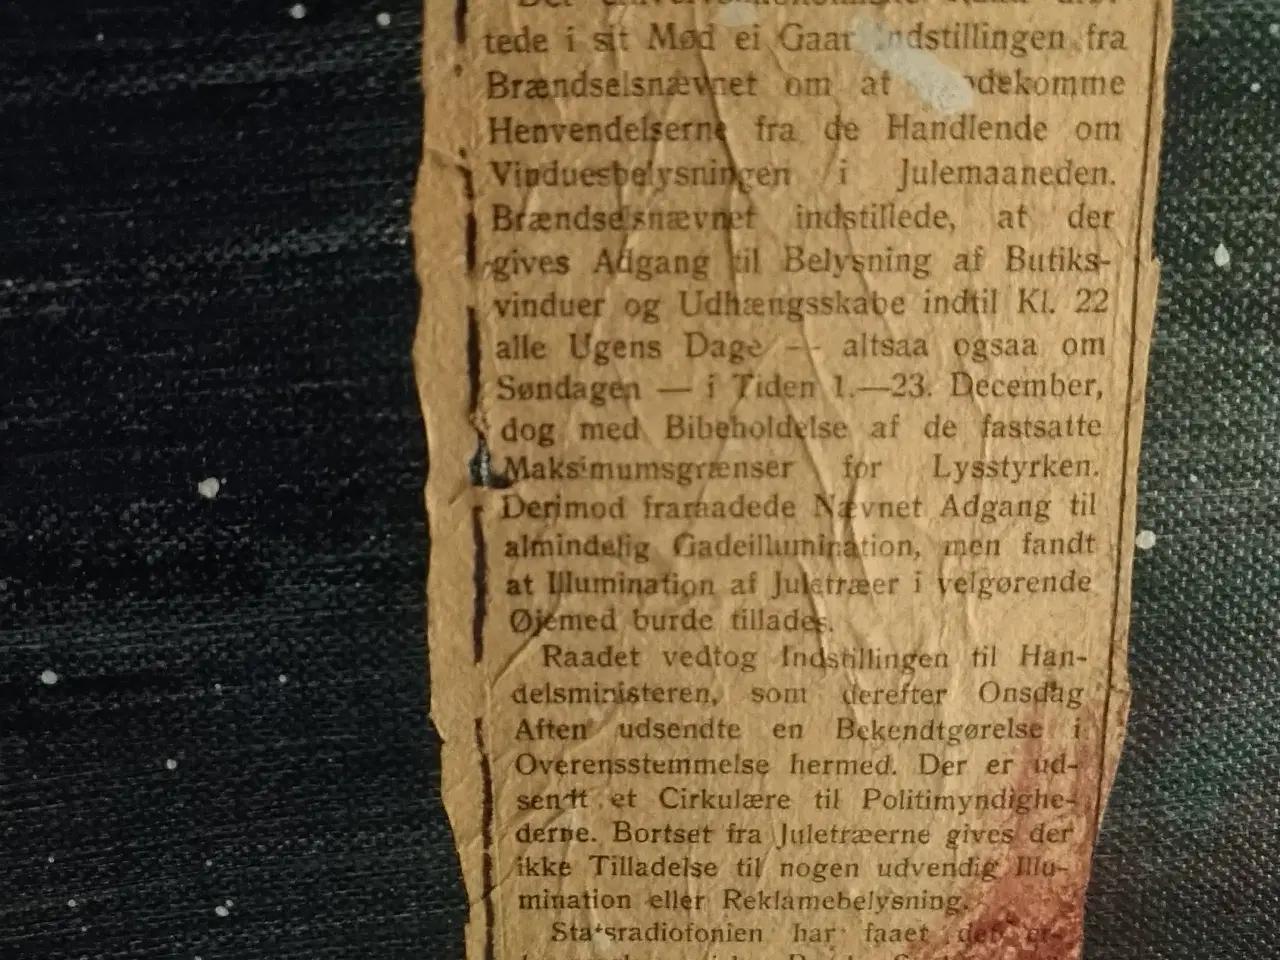 tede i sit Mød ei Gaar Indstillingen fra
Brændselsnævnet om at
Henvendelserne fra de Handlende om
Vinduesbelysningen i Julemaaneden.
Brændselsnævnet indstillede, at der
gives Adgang til Belysning af Butiks-
vinduer og Udhængsskabe indtil Kl. 22
alle Ugens Dage — altsaa ogsaa om
Søndagen — i Tiden 1.—23. December,
dog med Bibeholdelse af de fastsatte
Maksimumsgrænser for Lysstyrken.
Derimod fraraadede Nævnet Adgang til
almindelig Gadeillumination, men fandt
at Illumination af Juletræer i velgørende
Øjemed burde tillades.
Raadet vedtog Indstillingen til Han-
delsministeren, som derefter Onsdag
Aften udsendte en Bekendtgørelse i
Overensstemmelse hermed. Der er ud-
sendt et Cirkulære til Politimyndighe-
derne. Bortset fra Juletræerne gives der
ikke Tilladelse til nogen udvendig Illu-
mination eller Reklamebelysning.
Statsradiofonien har faaet det er-